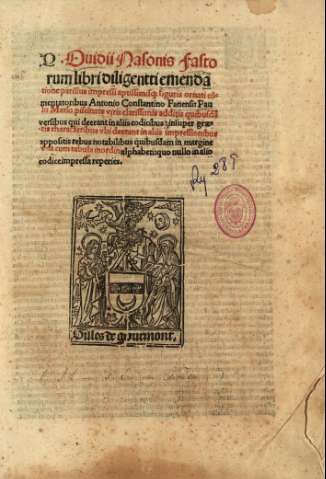 P. Ouidii Nasonis Fasto
rum libri diligenti emendā
tione perstius impressi aptissimisq; figuris ornati cō
mentatoribus Antonio Constantino Fanensi Pau
lo Marso piscinate viris clarissimis additis quibusdā
versibus qui deerant in aliis codicibus: insuper græ
cis characteribus vbi deerant in aliis impressionibus
appositis rebus notabilibus quibusdam in margine
cum tabula in ordinē alphabeti quo nullo in alio
codice impressa reperies.
289
Gilles de gourmont.